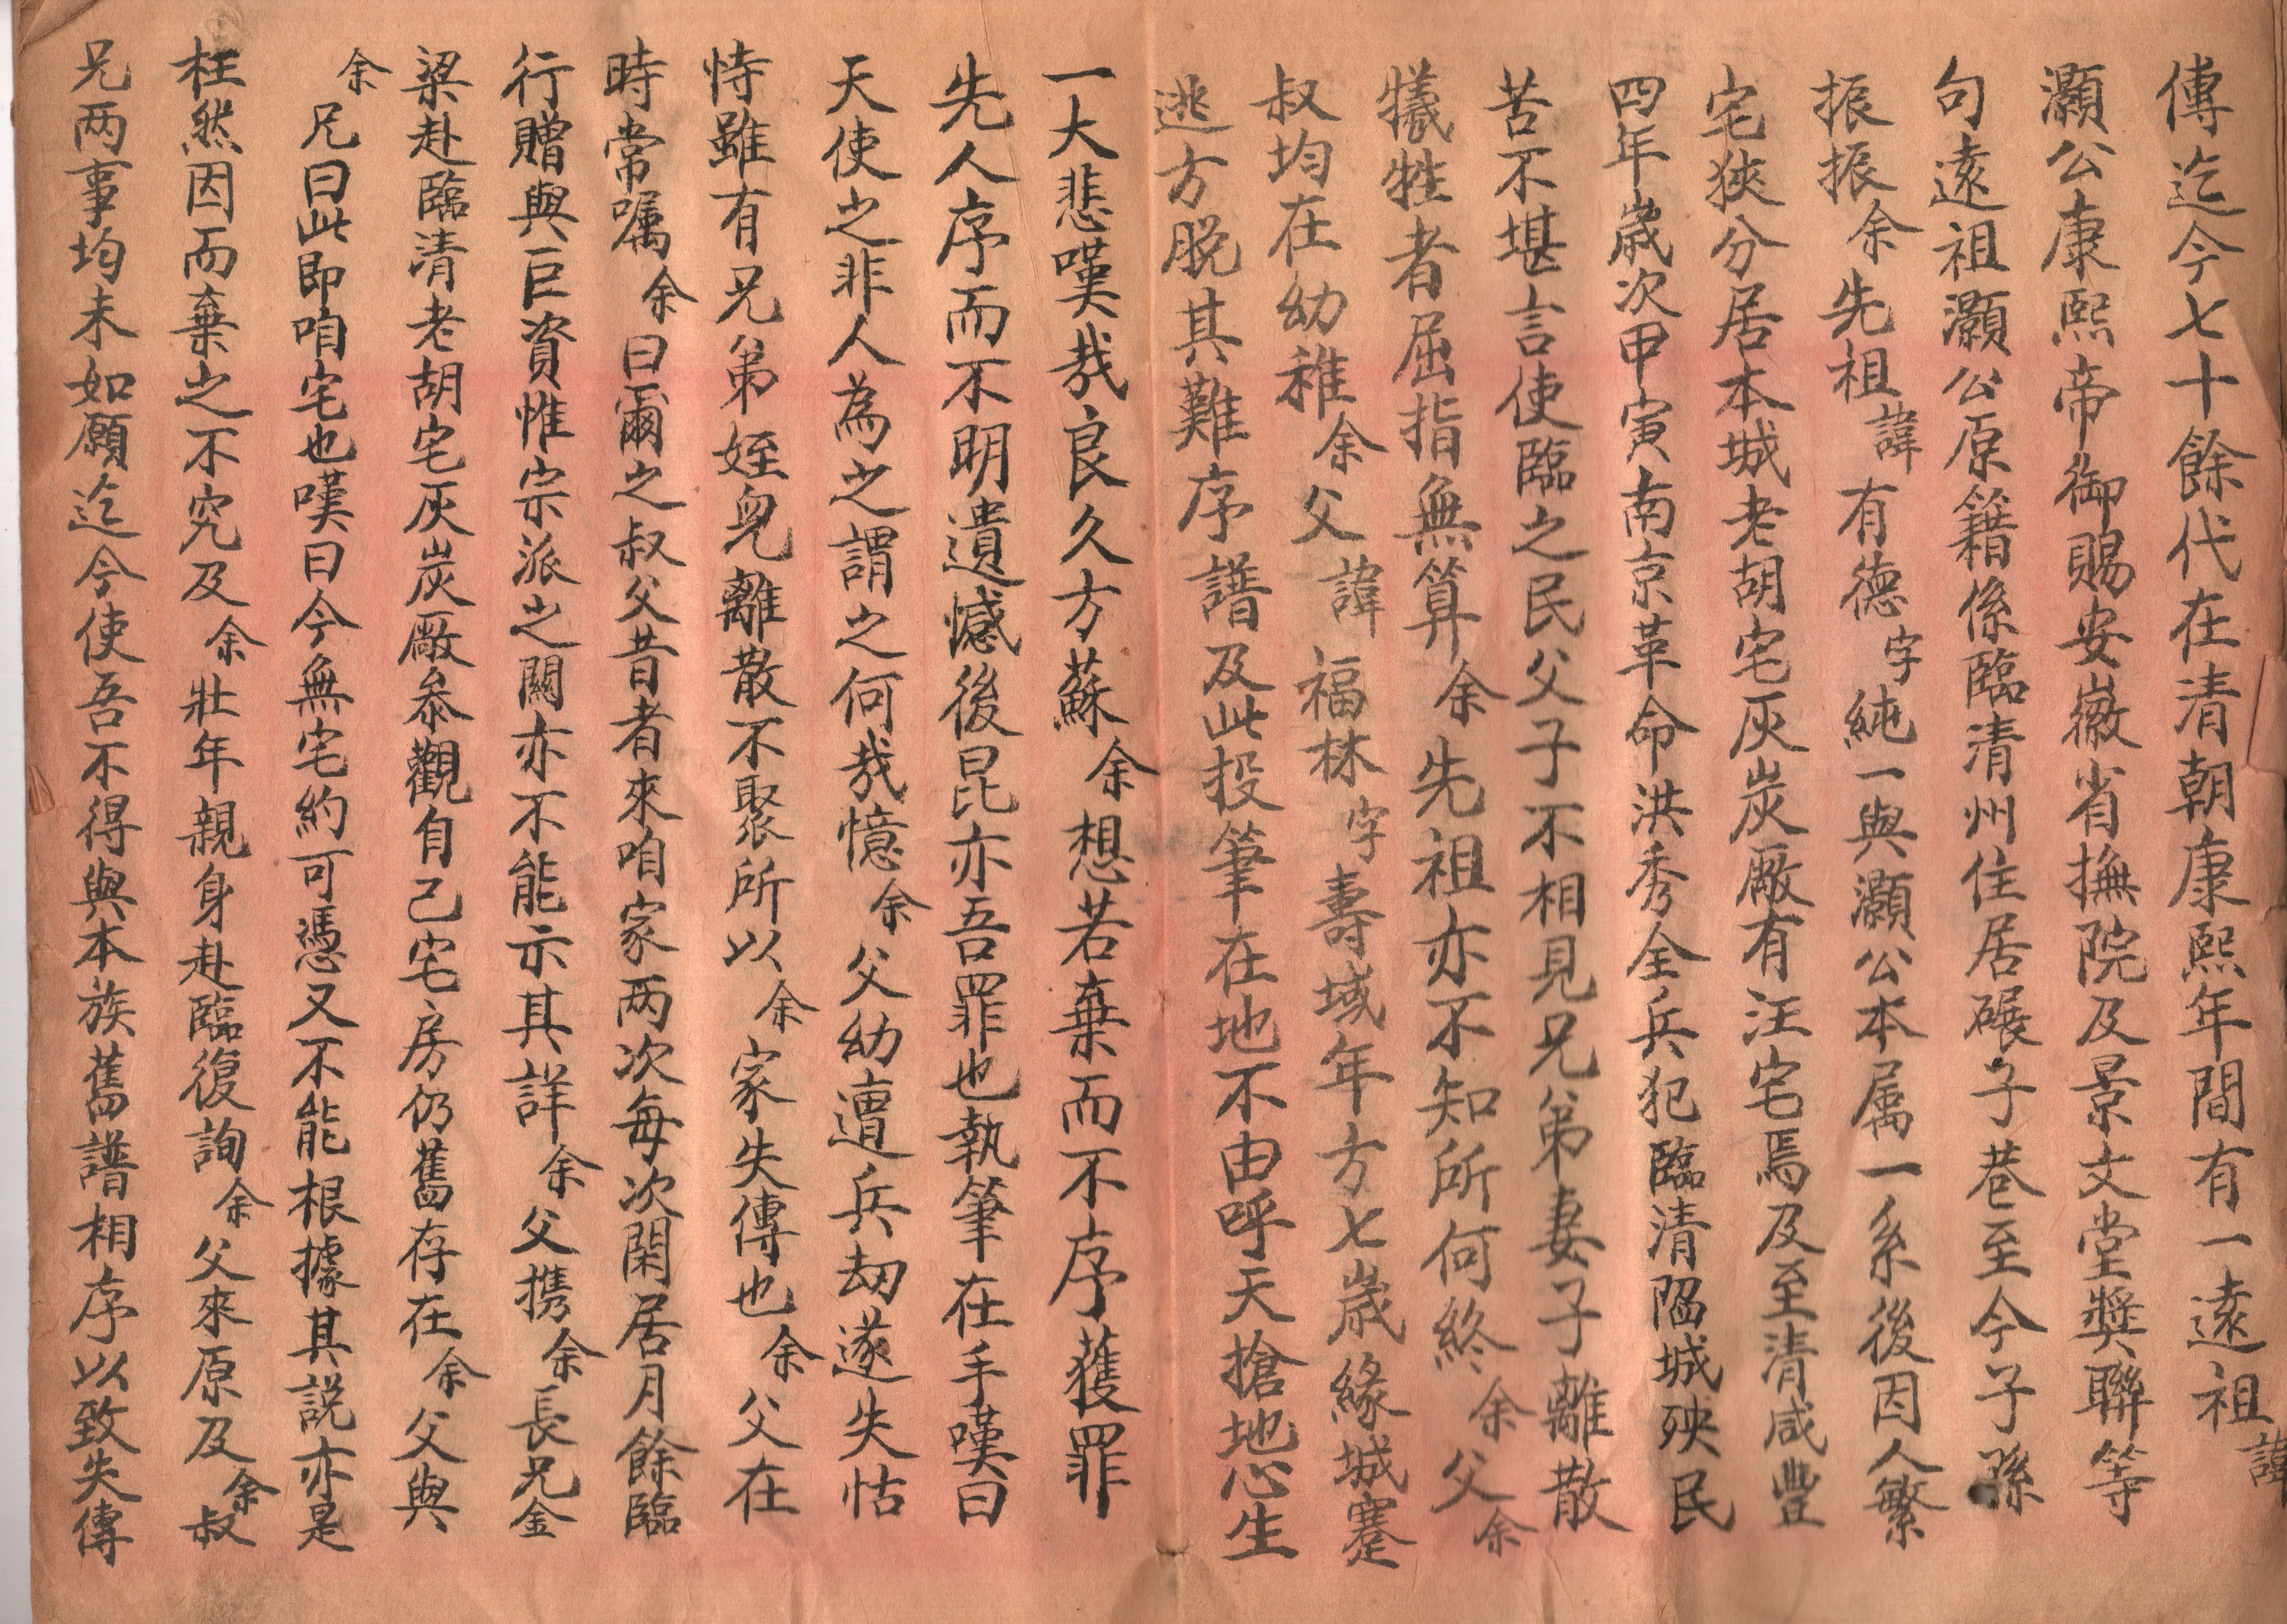 傳迄今七十餘代在清朝康熙年間有一遠祖諱
灝公康熙帝御賜安徽省撫院及景文堂獎聯等
句遠祖灝公原籍係臨清州住居碾子巷至今子孫
振振余先祖諱有德字純一與灝公本属一系後因人繁
宅狹分居本城老胡宅灰炭廠有汪宅焉及至清咸豐
四年歲次甲寅南京革命洪秀全兵犯臨清陷城殃民
苦不堪言使臨之民父子不相見兄弟妻子離散
犧牲者屈指無算余先祖亦不知所何終余父余
叔均在幼稚余父諱福林字壽域年方七歲緣城蹇
逃方脱其難序譜及此投筆在地不由呼天搶地心生
一大悲嘆哉良久方蘇余想若棄而不序獲罪
先人序而不明遺憾後昆亦吾罪也執筆在手嘆曰
天使之非人為之謂之何哉憶余父幼遭兵刼遂失怙
恃雖有兄弟姪皃離散不聚所以余家失傳也余父在
時常嘱余曰爾之叔父昔者來咱家两次每次閑居月餘臨
行贈與巨資惟宗派之關亦不能示其詳余父携余長兄金
梁赴臨清老胡宅灰炭廠叅觀自己宅房仍舊存在余父與
余兄曰此即咱宅也嘆曰今無宅約可憑又不能根據其説亦是
枉然因而棄之不究及余壯年親身赴臨復詢余父來原及余叔
兄两事均未如願迄今使吾不得與本族舊譜相序以致失傳